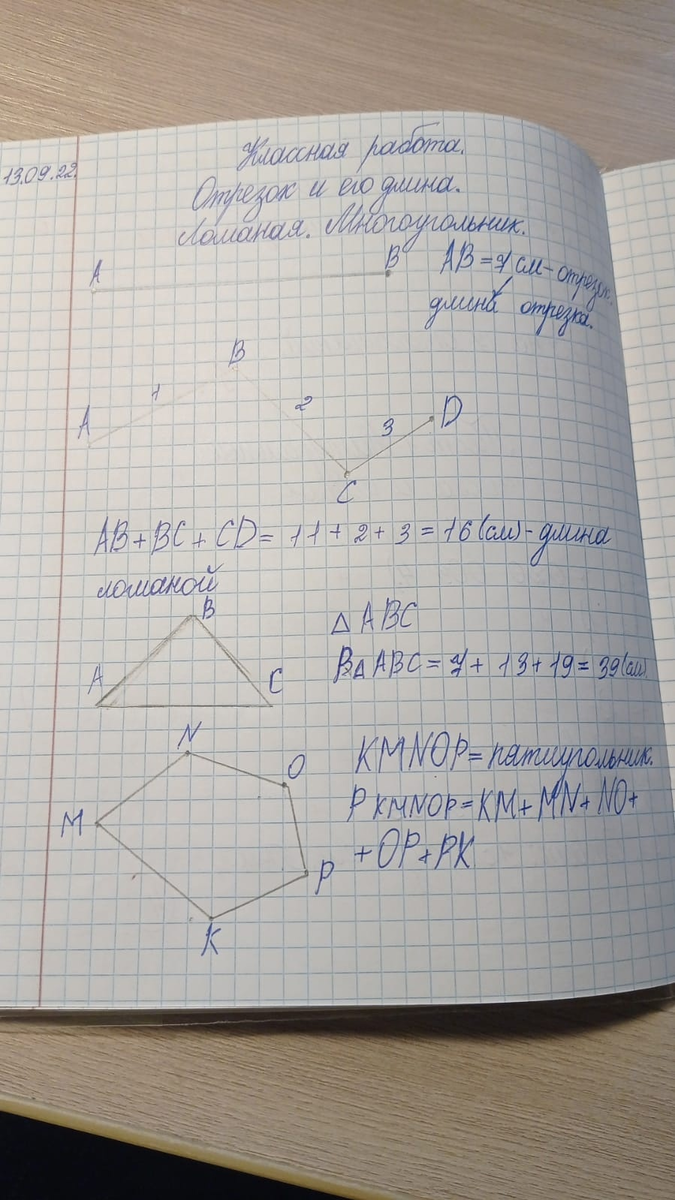 13.09.22.
Классная работа.
Отрезок и его длина.
Ломаная. Многоугольник.
A B
AB = 7 см - отрезок.
длина отрезка.
A 1 B 2 C 3 D
AB + BC + CD = 11 + 2 + 3 = 16 (см) - длина
ломаной
A B C
△ ABC
P△ ABC = 7 + 13 + 19 = 39 (см)
M N O P K
KMNOP = пятиугольник.
P KMNOP = KM + MN + NO +
+ OP + PK